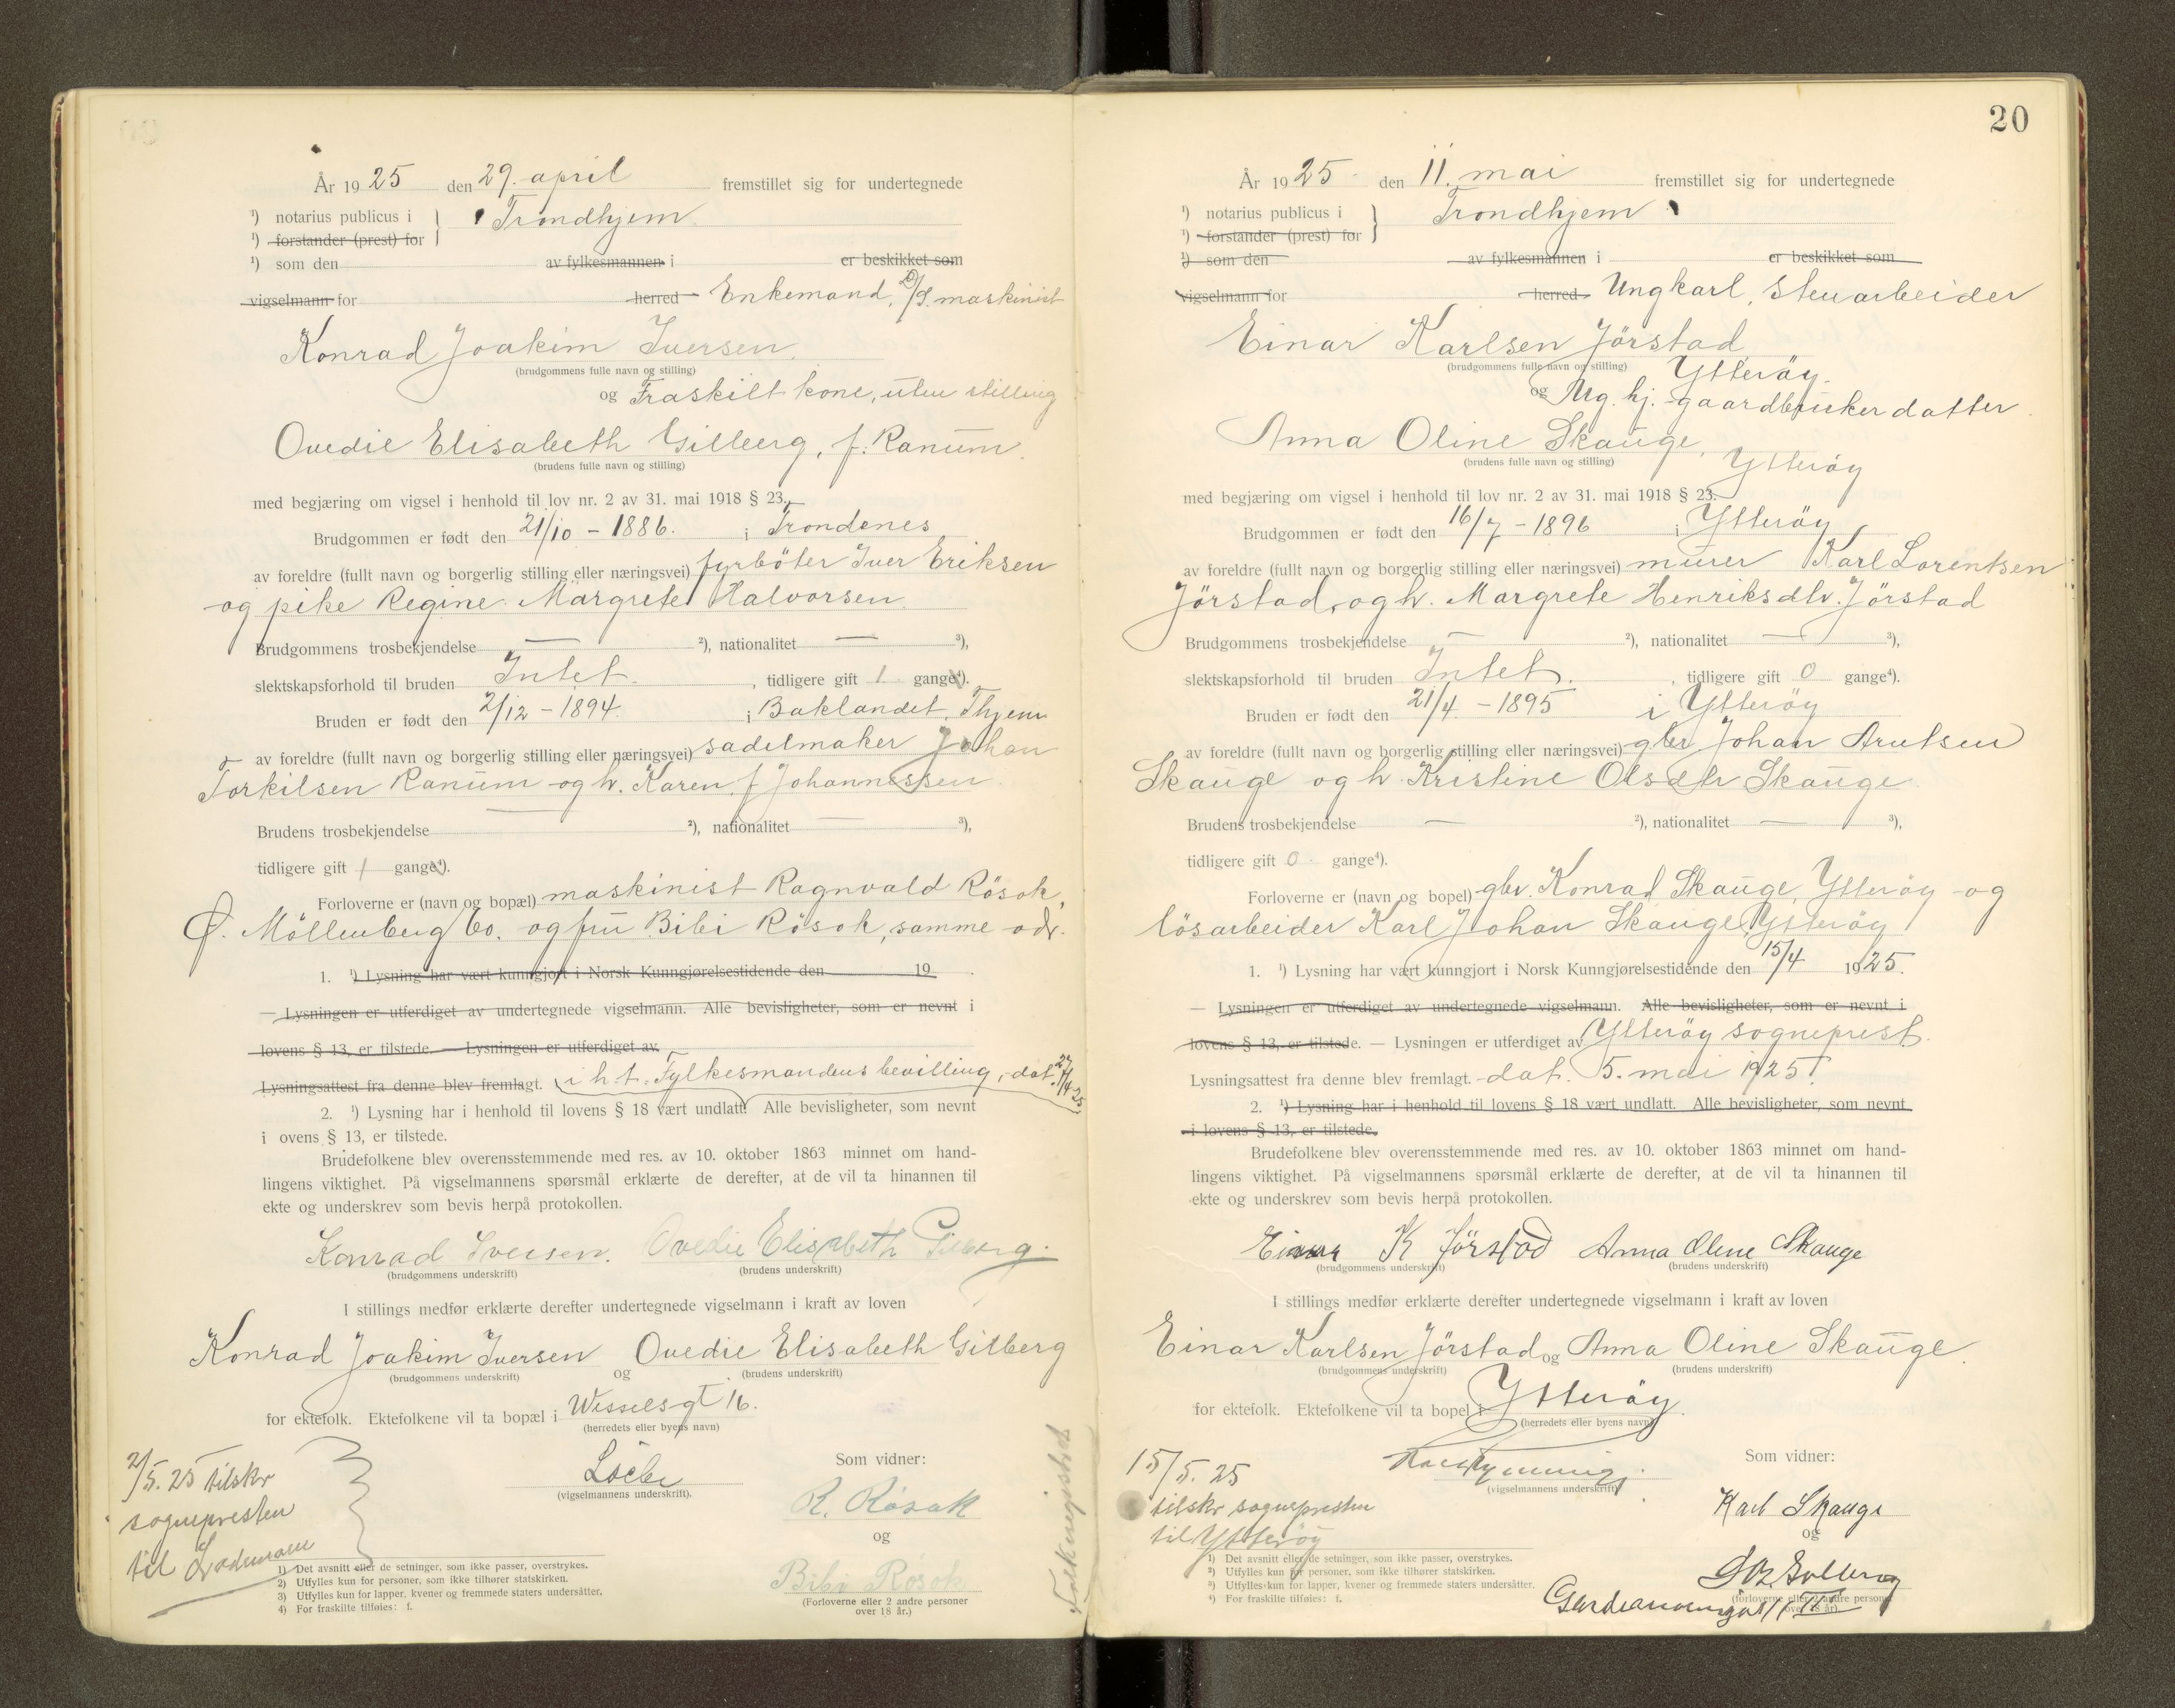 År 1925 den 29. april fremstillet sig for undertegnede
¹) notarius publicus i } Trondhjem
¹) forstander (prest) for
¹) som den av fylkesmannen i er beskikket som
vigselmann for herred Enkemand, D/S. maskinist
Konrad Joakim Iversen
(brudgommens fulle navn og stilling)
og Fraskilt kone, uten stilling
Ovedie Elisabeth Gilberg, f. Ranum.
(brudens fulle navn og stilling)
med begjæring om vigsel i henhold til lov nr. 2 av 31. mai 1918 § 23.
Brudgommen er født den 21/10 - 1886. i Trondenes
av foreldre (fullt navn og borgerlig stilling eller næringsvei) fyrböter Iver Eriksen
og pike Regine Margrete Halvorsen.
Brudgommens trosbekjendelse — ²), nationalitet — ³),
slektskapsforhold til bruden Intet. , tidligere gift 1 gange⁴).
Bruden er født den 2/12 - 1894. i Baklandet, Thjem
av foreldre (fullt navn og borgerlig stilling eller næringsvei) sadelmaker Johan
Torkilsen Ranum og h. Karen f. Johannessen
Brudens trosbekjendelse — ²), nationalitet — ³),
tidligere gift 1 gange⁴).
Forloverne er (navn og bopæl) maskinist Ragnvald Rösok,
Ø. Möllenberg 60. og fru Bibi Rösok, samme adr.
1. ¹) Lysning har vært kunngjort i Norsk Kunngjørelsestidende den 19
— Lysningen er utferdiget av undertegnede vigselmann. Alle bevisligheter, som er nevnt i
lovens § 13, er tilstede. — Lysningen er utferdiget av
Lysningsattest fra denne blev fremlagt. i h. t. Fylkesmandens bevilling, dat. 27/4 25
2. ¹) Lysning har i henhold til lovens § 18 vært undlatt. Alle bevisligheter, som nevnt
i ovens § 13, er tilstede.
Brudefolkene blev overensstemmende med res. av 10. oktober 1863 minnet om hand-
lingens viktighet. På vigselmannens spørsmål erklærte de derefter, at de vil ta hinannen til
ekte og underskrev som bevis herpå protokollen.
Konrad Iversen. Ovedie Elisabeth Gilberg.
(brudgommens underskrift) (brudens underskrift)
I stillings medfør erklærte derefter undertegnede vigselmann i kraft av loven
Konrad Joakim Iversen og Ovedie Elisabeth Gilberg
(brudgommens underskrift) (brudens underskrift)
for ektefolk. Ektefolkene vil ta bopæl i Wesselsgt 16.
(herredets eller byens navn)
2/5. 25 tilskr
sognepresten
til Lademoen
(vigselmannens underskrift).
Som vidner:
R. Rösok
og
Bibi Rösok
(Forloverne eller 2 andre personer
over 18 år.)
Folkeregistret
1) Det avsnitt eller de setninger, som ikke passer, overstrykes.
2) Utfylles kun for personer, som ikke tilhører statskirken.
3) Utfylles kun for lapper, kvener og fremmede staters undersåtter.
4) For fraskilte tilføies: f.
20
År 1925 den 11. mai fremstillet sig for undertegnede
¹) notarius publicus i } Trondhjem
¹) forstander (prest) for
¹) som den av fylkesmannen i er beskikket som
vigselmann for herred Ungkarl, stenarbeider
Einar Karlsen Jörstad
(brudgommens fulle navn og stilling) Ytteröy.
og Ug. hj. gaardbruker datter
Anna Oline Skauge,
(brudens fulle navn og stilling) Ytteröy
med begjæring om vigsel i henhold til lov nr. 2 av 31. mai 1918 § 23.
Brudgommen er født den 16/7 - 1896 i Ytteröy
av foreldre (fullt navn og borgerlig stilling eller næringsvei) murer Karl Lorentsen
Jörstad, og h. Margrete Henriksdtr. Jörstad
Brudgommens trosbekjendelse — ²), nationalitet — ³),
slektskapsforhold til bruden Intet. , tidligere gift 0 gange⁴).
Bruden er født den 21/4 - 1895 i Ytteröy
av foreldre (fullt navn og borgerlig stilling eller næringsvei) gbr Johan Arntsen
Skauge og h. Kristine Olsdtr Skauge
Brudens trosbekjendelse — ²), nationalitet — ³),
tidligere gift 0 gange⁴).
Forloverne er (navn og bopel) gbr. Konrad Skauge, Ytteröy og
lösarbeider Karl Johan Skauge, Ytteröy
1. ¹) Lysning har vært kunngjort i Norsk Kunngjørelsestidende den 15/4 1925.
— Lysningen er utferdiget av undertegnede vigselmann. Alle bevisligheter, som er nevnt i
lovens § 13, er tilstede. — Lysningen er utferdiget av Ytteröy sogneprest.
Lysningsattest fra denne blev fremlagt. dat. 5. mai 1925.
2. ¹) Lysning har i henhold til lovens § 18 vært undlatt. Alle bevisligheter, som nevnt
i lovens § 13, er tilstede.
Brudefolkene blev overensstemmende med res. av 10. oktober 1863 minnet om hand-
lingens viktighet. På vigselmannens spørsmål erklærte de derefter, at de vil ta hinannen til
ekte og underskrev som bevis herpå protokollen.
Einar K Jörstad Anna Oline Skauge
(brudgommens underskrift) (brudens underskrift)
I stillings medfør erklærte derefter undertegnede vigselmann i kraft av loven
Einar Karlsen Jörstad og Anna Oline Skauge.
(brudgommens underskrift) (brudens underskrift)
for ektefolk. Ektefolkene vil ta bopel i Ytteröy.
(herredets eller byens navn)
15/5. 25
tilskr sognepresten
til Ytteröy
(vigselmannens underskrift)
Som vidner:
Karl Skauge
og
(forloverne eller 2 andre personer
over 18 år).
¹) Det avsnitt eller de setninger, som ikke passer, overstrykes.
²) Utfylles kun for personer, som ikke tilhører statskirken.
³) Utfylles kun for lapper, kvener og fremmede staters undersåtter.
⁴) For fraskilte tilføies: f.